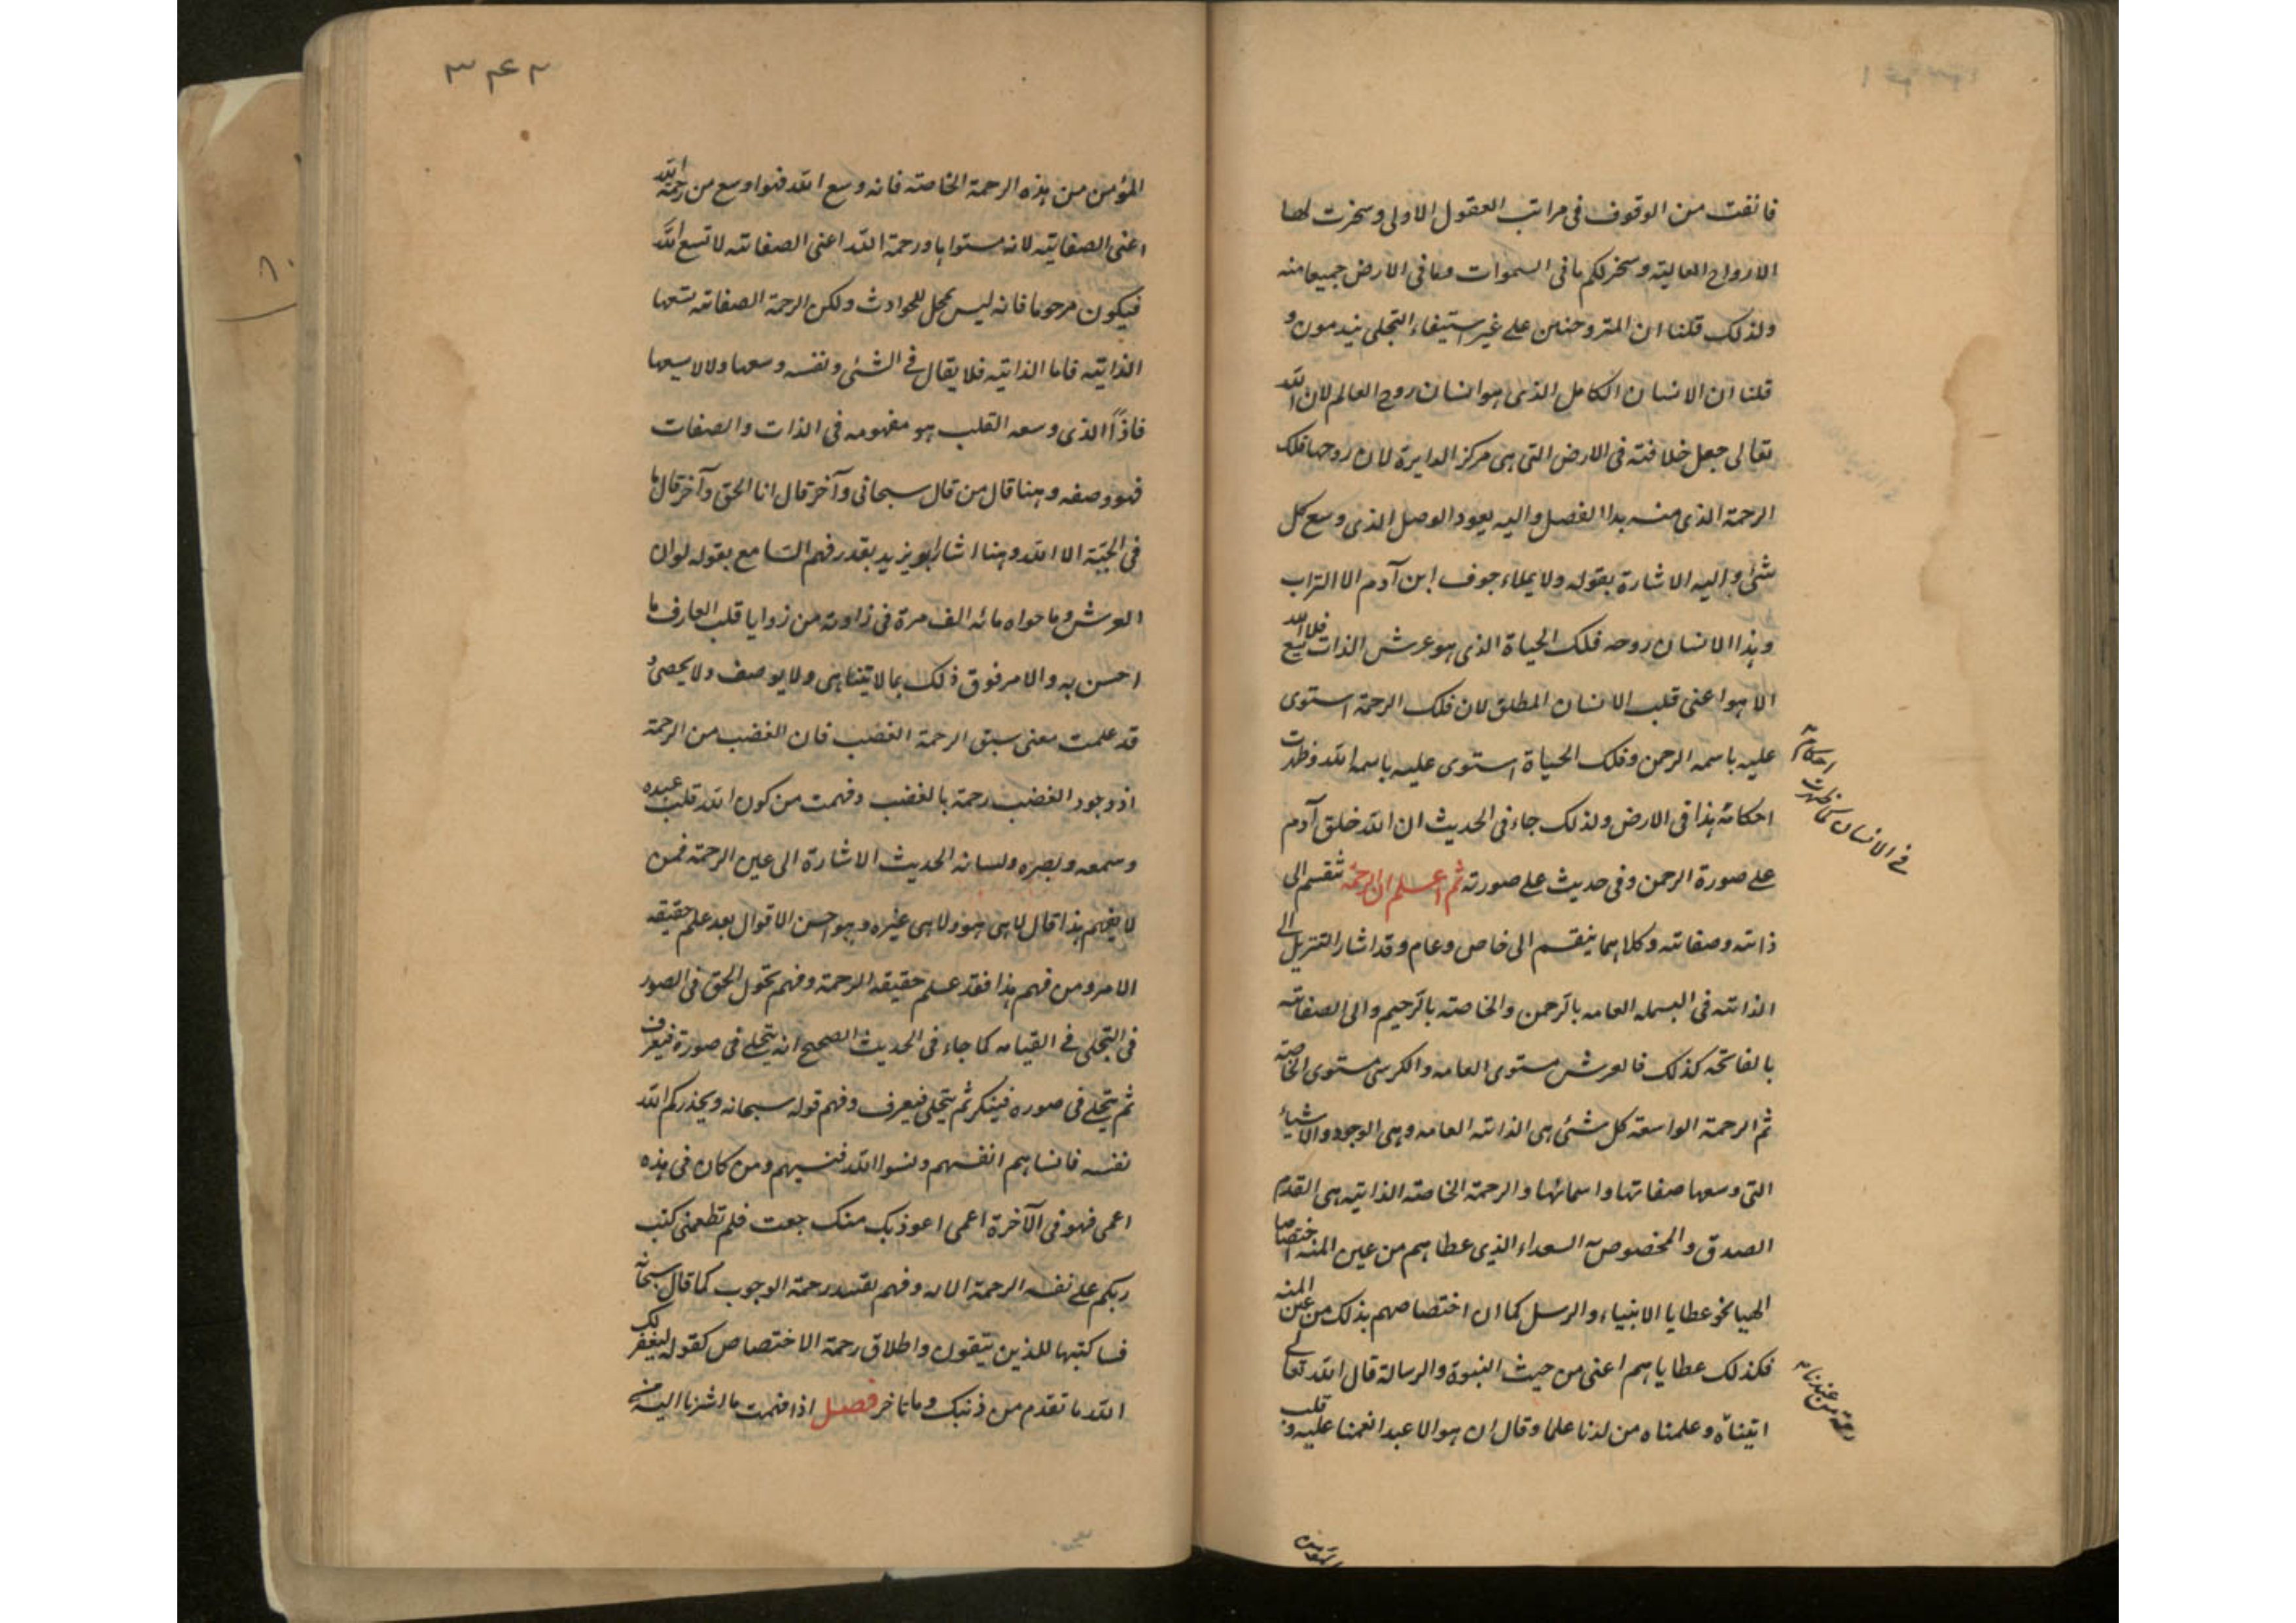 فانفت من الوقوف فى مراتب العقول الاولى وسخرت لها
الارواح العالية وسخر لكم ما فى السموات وما فى الارض جميعا منه
ولذلك قلنا ان المتروحنين على غير استيفاء التجلى يندمون و
قلنا ان الانسان الكامل الذى هو انسان روح العالم لان الله
تعالى جعل خلافته فى الارض التى هى مركز الدايرة لان روحها فلك
الرحمة الذى منه بدا الفصل واليه يعود الوصل الذى وسع كل
شئ واليه الاشارة بقوله ولا يملاء جوف ابن آدم الا التراب
وهذا الانسان روحه فلك الحياة الذى هو عرش الذات فلا يسع الله
الا هو اعنى قلب الانسان المطلق لان فلك الرحمة استوى
عليه باسمه الرحمن وفلك الحياة استوى عليه باسمه الله وظهرت
احكامه هذا فى الارض ولذلك جاء فى الحديث ان الله خلق آدم
على صورة الرحمن وفى حديث على صورته ثم اعلم ان الرحمة تنقسم الى
ذاتية وصفاتية وكلاهما ينقسم الى خاص وعام وقد اشار التنزيل الى
الذاتية فى البسملة العامه بالرحمن والخاصة بالرحيم والى الصفاتية
بالفاتحة كذلك فالعرش مستوى العامه والكرسى مستوى الخاصة
ثم الرحمة الواسعة كل شئ هى الذاتية العامه وهى الوجود والاشياء
التى وسعها صفاتها واسمائها والرحمة الخاصة الذاتية هى القدم
الصدق والمخصوص به السعداء الذى عطاهم من عين المنه اختصاصا
الهيا نحو عطايا الانبياء والرسل كما ان اختصاصهم بذلك من عين المنه
فكذلك عطاياهم اعنى من حيث النبوة والرسالة قال الله تعالى
اتيناه وعلمناه من لدنا علما وقال ان هو الا عبد انعمنا عليه و قلب
احكامه
فى الانسان كما ظهرت
رحمة من عندنا
المؤمن من هذه الرحمة الخاصة فانه وسع الله فهو اوسع من رحمة الله
اعنى الصفاتية لانه مستواها ورحمة الله اعنى الصفاتية لا تسع الله
فيكون مرحوما فانه ليس بمحل للحوادث ولكن الرحمة الصفاتية يسعها
الذاتية فاما الذاتية فلا يقال فى الشئ ونفسه وسعها ولا لا يسعها
فاذاً الذى وسعه القلب هو مفهومه فى الذات والصفات
فهو وصفه وهنا قال من قال سبحانى وآخر قال انا الحق وآخر قال ما
فى الجبّة الا الله وهنا اشار ابو يزيد بقدر فهم السامع بقوله لو ان
العرش وما حواه مائه الف مرة فى زاوية من زوايا قلب العارف ما
احسن به والامر فوق ذلك بما لا يتناهى ولا يوصف ولا يحصى و
قد علمت معنى سبق الرحمة الغضب فان الغضب من الرحمة
اذ وجود الغضب رحمة بالغضب وفهمت من كون الله قلب عبده
وسمعه وبصره ولسانه الحديث الاشارة الى عين الرحمة فمن
لا يفهم هذا قال لا هى هو ولا هى غيره وهو احسن الاقوال بعد علم حقيقة
الامر ومن فهم هذا فقد علم حقيقة الرحمة وفهم تحول الحق فى الصور
فى التجلى فى القيامه كما جاء فى الحديث الصحيح انه يتجلى فى صورة فيعرف
ثم يتجلى فى صوره فينكر ثم يتجلى فيعرف وفهم قوله سبحانه ويحذركم الله
نفسه فانساهم انفسهم ونسوا الله فنسيهم ومن كان فى هذه
اعمى فهو فى الآخرة اعمى اعوذ بك منك جعت فلم تطعمنى كتب
ربكم على نفسه الرحمة وفهم تقيد رحمة الوجوب كما قال سبحانه
فساكتبها للذين يتقون واطلاق رحمة الاختصاص كقوله ليغفر لك
الله ما تقدم من ذنبك وما تاخر فصل اذا فهمت ما اشرنا اليه من